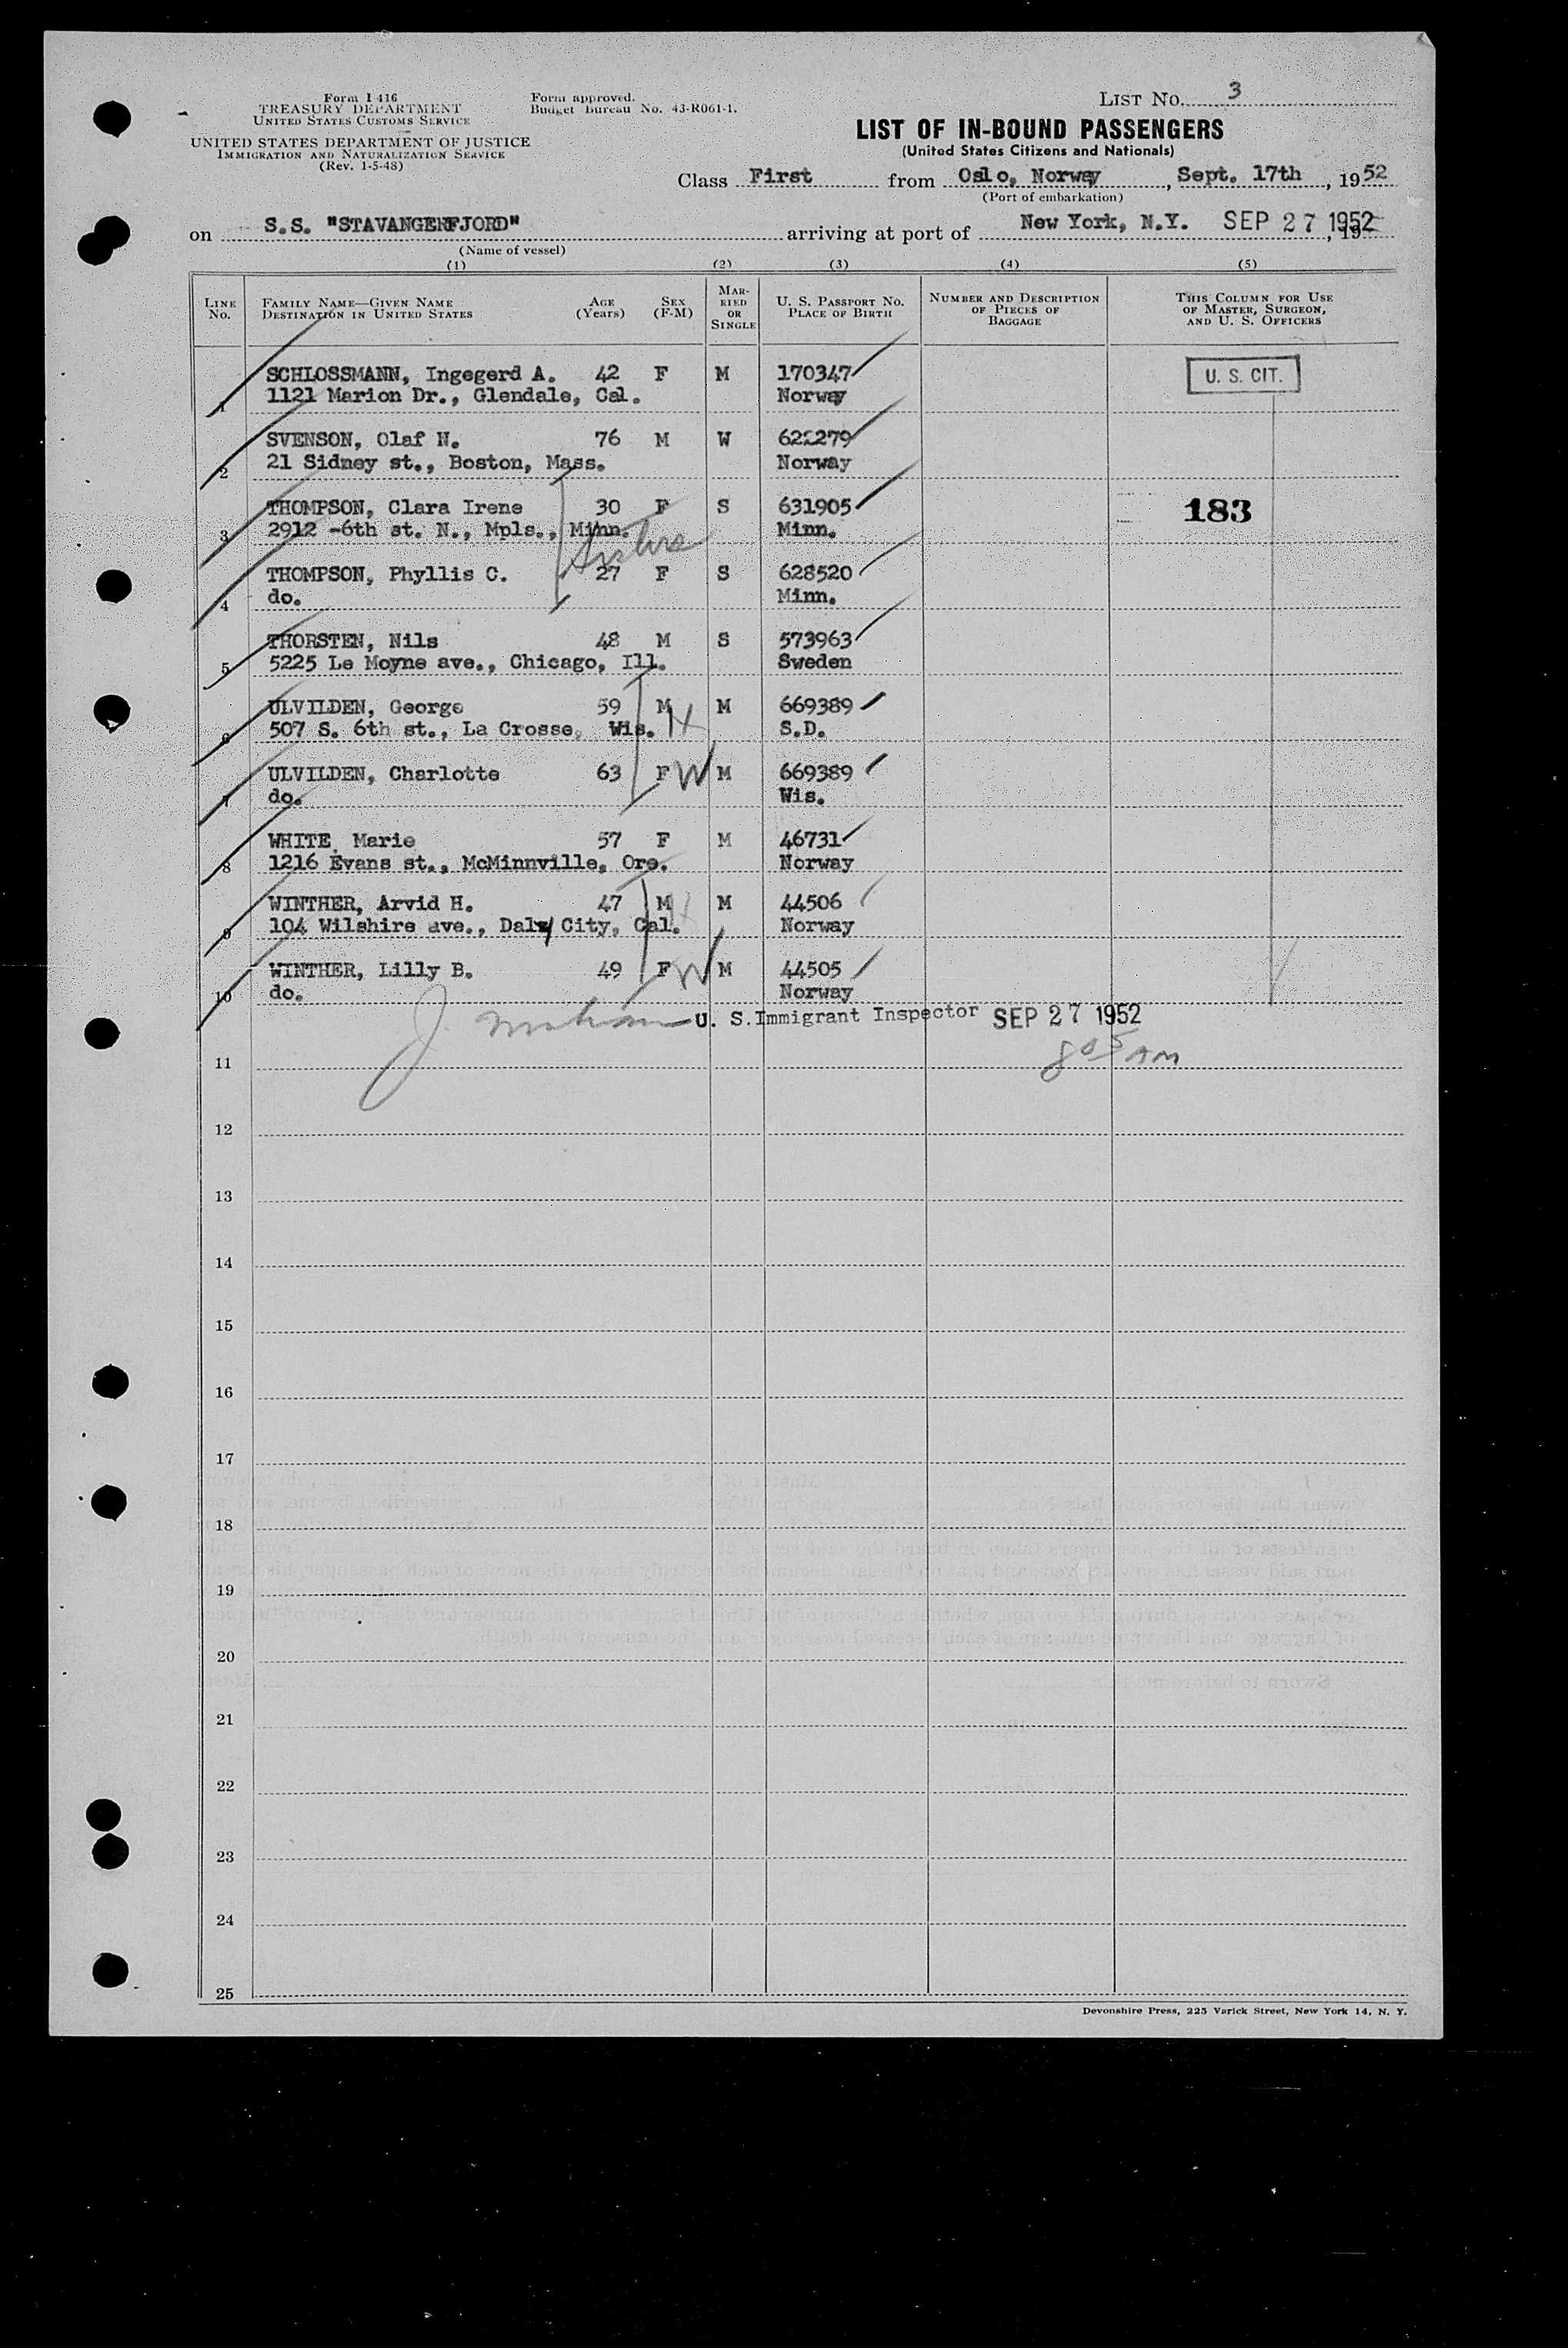 Form I 416
TREASURY DEPARTMENT
UNITED STATES CUSTOMS SERVICE
UNITED STATES DEPARTMENT OF JUSTICE
IMMIGRATION AND NATURALIZATION SERVICE
(Rev. 1-5-48)
Form approved.
Budget Bureau No. 43-R061-1.
LIST NO. 3
LIST OF IN-BOUND PASSENGERS
(United States Citizens and Nationals)
Class First from Oslo, Norway, Sept. 17th, 1952
(Port of embarkation)
on S.S. "STAVANGERFJORD" arriving at port of New York, N.Y. SEP 27 1952
(Name of vessel)
(1) (2) (3) (4) (5)
LINE NO. FAMILY NAME—GIVEN NAME DESTINATION IN UNITED STATES AGE (Years) SEX (F-M) MARRIED OR SINGLE U. S. PASSPORT NO. PLACE OF BIRTH NUMBER AND DESCRIPTION OF PIECES OF BAGGAGE THIS COLUMN FOR USE OF MASTER, SURGEON, AND U. S. OFFICERS
SCHLOSSMANN, Ingegerd A. 42 F M 170347 U. S. CIT.
1 1121 Marion Dr., Glendale, Cal. Norway
SVENSON, Olaf N. 76 M W 622279
2 21 Sidney st., Boston, Mass. Norway
THOMPSON, Clara Irene 30 F S 631905 183
3 2912 -6th st. N., Mpls., Minn. Minn.
THOMPSON, Phyllis C. 27 F S 628520
4 do. Minn.
THORSTEN, Nils 48 M S 573963
5 5225 Le Moyne ave., Chicago, Ill. Sweden
ULVILDEN, George 59 M H M 669389
6 507 S. 6th st., La Crosse, Wis. S.D.
ULVILDEN, Charlotte 63 F W M 669389
7 do. Wis.
WHITE, Marie 57 F M 46731
8 1216 Evans st., McMinnville, Ore. Norway
WINTHER, Arvid H. 47 M H M 44506
9 104 Wilshire ave., Daly City, Cal. Norway
WINTHER, Lilly B. 49 F W M 44505
10 do. Norway
U. S. Immigrant Inspector SEP 27 1952
8 05 AM
11
12
13
14
15
16
17
18
19
20
21
22
23
24
25
Devonshire Press, 225 Varick Street, New York 14, N. Y.